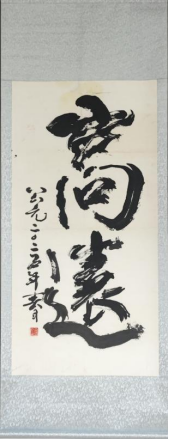 高遠
公元二〇二五年春月